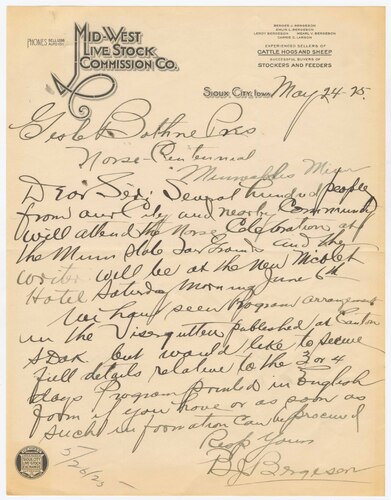 PHONES BELL 5188
AUTO 1311
MID-WEST
LIVE STOCK
COMMISSION CO.
BERGER J. BERGESON
EMUN L. BERGESON
LEROY BERGESON HENRY V. BERGESON
CARRIE O. LARSON
EXPERIENCED SELLERS OF
CATTLE HOGS AND SHEEP
SUCCESSFUL BUYERS OF
STOCKERS AND FEEDERS
SIOUX CITY, IOWA, May 24-25.
Bothne Pres
Norse-Centennial
Dear Sir: Several hundred people
from our City and nearby Community
will attend the Norse Celebration at
the Minn State Fair Grounds and the
writer will be at the New Nicolet
Hotel Saturday morning June 6th
We have seen Program arrangement
in the Visergutten published at Canton
S Dak. but would like to secure
full details relative to the 3 or 4
days Program printed in English
form if you have or as soon as
such information can be procured
Resp Yours
B J Bergeson
5/26/25